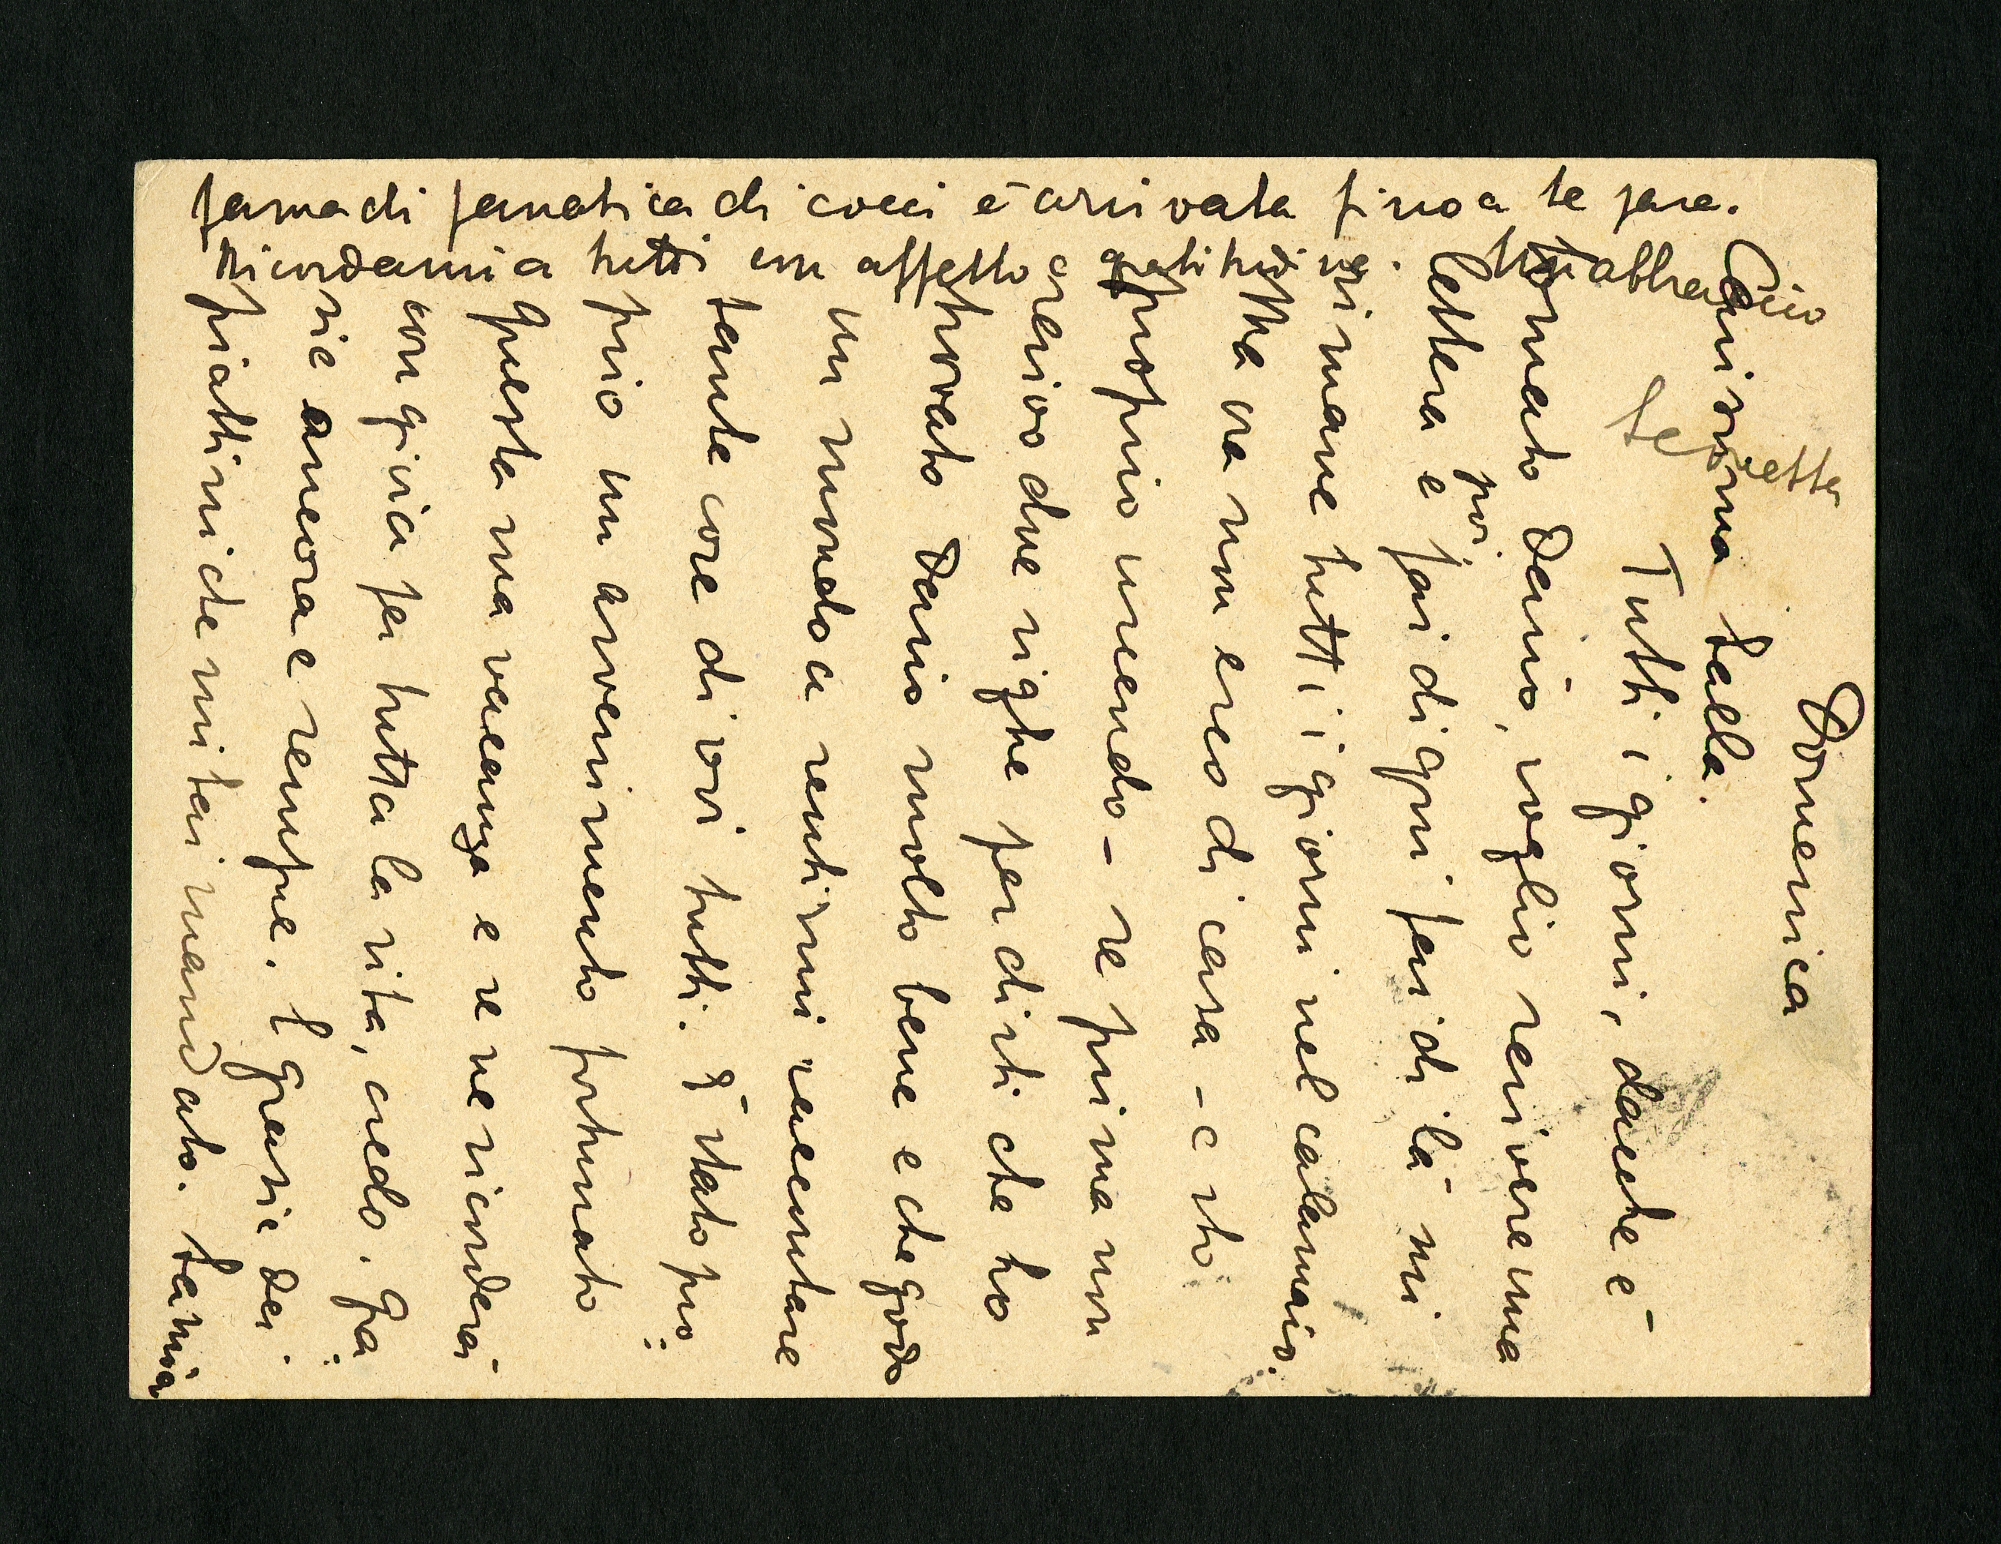 Domenica
Carissima Lalla.
Tutti i giorni, dacché è
tornato Dario, voglio scrivere una
lettera e poi fai di qui fai di là mi
rimane tutti i giorni nel calamaio.
Ma ora non esco di casa - e sto
proprio uscendo - se prima non
scrivo due righe per dirti che ho
trovato Dario molto bene e che godo
un mondo a sentirmi raccontare
tante cose di voi tutti. È stato pro:
prio un avvenimento fortunato
questa sua vacanza e se ne ricorderà
con gioia per tutta la vita, credo. Gra:
zie ancora e sempre. E grazie dei
piattini che mi hai mandato. La mia
fama di fanatica di cocci è arrivata fino a te pare.
Ricordami a tutti con affetto e gratitudine. Ti abbraccio